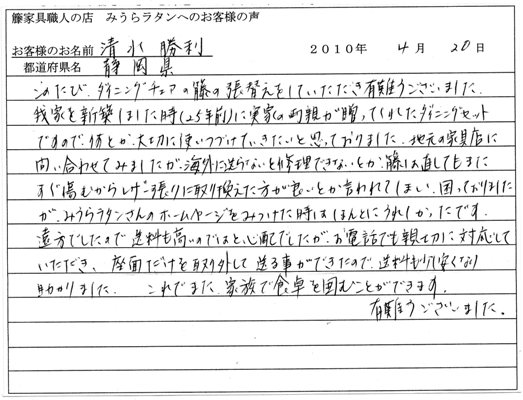 籐家具職人の店　みうらラタンへのお客様の声
お客様のお名前　清水　勝利　　2010年　4月　20日
都道府県名　静岡県
このたび、ダイニングチェアの籐の張替えをしていただき有難うございました。
我家を新築しました時(25年前)に実家の両親が贈ってくれたダイニングセット
ですので、何とか大切に使いつづけていきたいと思っておりました。地元の家具店に
問い合わせてみましたが、海外に送らないと修理できないとか、籐は直してもまた
すぐ傷むからレザー張りに取り換えた方が良いとか言われてしまい、困っておりました
が、みうらラタンさんのホームページをみつけた時はほんとにうれしかったです。
遠方でしたので送料も高いのではと心配でしたが、お電話でも親切に対応して
いただき、座面だけを取り外して送る事ができたので、送料も安くなり
助かりました。　これでまた、家族で食卓を囲むことができます。
有難うございました。